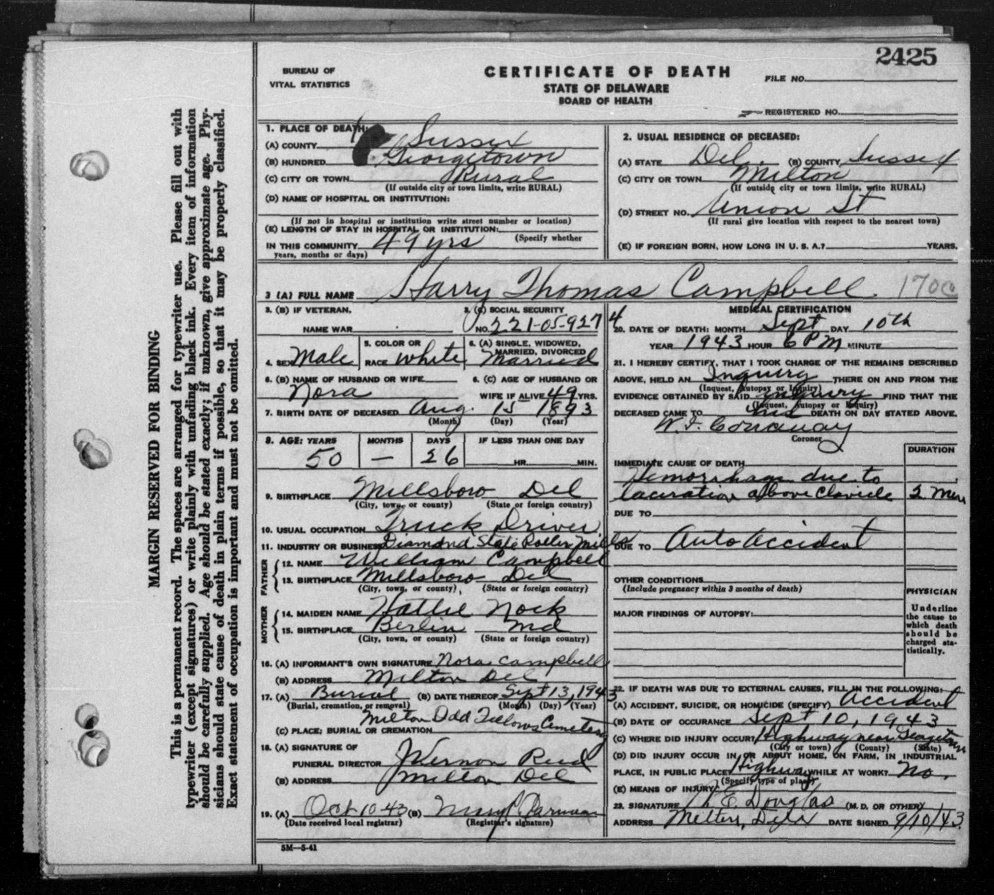 2425
BUREAU OF
VITAL STATISTICS
CERTIFICATE OF DEATH
STATE OF DELAWARE
BOARD OF HEALTH
FILE NO.
REGISTERED NO.
MARGIN RESERVED FOR BINDING
This is a permanent record. The spaces are arranged for typewriter use. Please fill out with
typewriter (except signatures) or write plainly with unfading black ink. Every item of information
should be carefully supplied. Age should be stated exactly; if unknown, give approximate age. Phy-
sicians should state cause of death in plain terms if possible, so that it may be properly classified.
Exact statement of occupation is important and must not be omitted.
1. PLACE OF DEATH:
(A) COUNTY Sussex
(B) HUNDRED Georgetown
(C) CITY OR TOWN Rural
(If outside city or town limits, write RURAL)
(D) NAME OF HOSPITAL OR INSTITUTION:
(If not in hospital or institution write street number or location)
(E) LENGTH OF STAY IN HOSPITAL OR INSTITUTION:
(Specify whether
IN THIS COMMUNITY 49 yrs
years, months or days)
2. USUAL RESIDENCE OF DECEASED:
(A) STATE Del. (B) COUNTY Sussex
(C) CITY OR TOWN Milton
(If outside city or town limits, write RURAL)
(D) STREET NO. Union St
(If rural give location with respect to the nearest town)
(E) IF FOREIGN BORN, HOW LONG IN U. S. A.? YEARS.
3 (A) FULL NAME Harry Thomas Campbell 170c
3. (B) IF VETERAN,
NAME WAR
3. (C) SOCIAL SECURITY
NO. 221-05-9274
4. SEX Male
5. COLOR OR
RACE white
6. (A) SINGLE, WIDOWED,
MARRIED, DIVORCED
Married
6. (B) NAME OF HUSBAND OR WIFE
Nora
6. (C) AGE OF HUSBAND OR
WIFE IF ALIVE 49 YRS.
7. BIRTH DATE OF DECEASED Aug. 15 1893
(Month) (Day) (Year)
8. AGE: YEARS MONTHS DAYS IF LESS THAN ONE DAY
50 — 26 HR. MIN.
9. BIRTHPLACE Millsboro Del
(City, town, or county) (State or foreign country)
10. USUAL OCCUPATION Truck Driver
11. INDUSTRY OR BUSINESS Diamond State Roller Mills
FATHER
12. NAME William Campbell
13. BIRTHPLACE Millsboro Del
(City, town, or county) (State or foreign country)
MOTHER
14. MAIDEN NAME Hattie Nock
15. BIRTHPLACE Berlin Md
(City, town, or county) (State or foreign country)
16. (A) INFORMANT'S OWN SIGNATURE Nora Campbell
(B) ADDRESS Milton Del
17. (A) Burial (B) DATE THEREOF Sept 13, 1943
(Burial, cremation, or removal) (Month) (Day) (Year)
Milton Odd Fellows Cemetery
(C) PLACE; BURIAL OR CREMATION
18. (A) SIGNATURE OF
FUNERAL DIRECTOR J Vernon Reed
(B) ADDRESS Milton Del
19. (A) Oct 10 43 (B) Mary
(Date received local registrar) (Registrar's signature)
5M—5-41
MEDICAL CERTIFICATION
20. DATE OF DEATH: MONTH Sept DAY 10th
YEAR 1943 HOUR 6 PM MINUTE
21. I HEREBY CERTIFY, THAT I TOOK CHARGE OF THE REMAINS DESCRIBED
ABOVE, HELD AN Inquiry THERE ON AND FROM THE
(Inquest, Autopsy or Inquiry)
EVIDENCE OBTAINED BY SAID inquiry FIND THAT THE
(Inquest, Autopsy or Inquiry)
DECEASED CAME TO his DEATH ON DAY STATED ABOVE.
Coroner
DURATION
IMMEDIATE CAUSE OF DEATH
Hemorrhage due to
laceration above Clavicle
DUE TO
DUE TO Auto Accident
OTHER CONDITIONS
(Include pregnancy within 3 months of death)
MAJOR FINDINGS OF AUTOPSY:
PHYSICIAN
Underline
the cause to
which death
should be
charged sta-
tistically.
22. IF DEATH WAS DUE TO EXTERNAL CAUSES, FILL IN THE FOLLOWING:
(A) ACCIDENT, SUICIDE, OR HOMICIDE (SPECIFY) Accident
(B) DATE OF OCCURANCE Sept 10, 1943
(C) WHERE DID INJURY OCCUR? Highway near Georgetown
(City or town) (County) (State)
(D) DID INJURY OCCUR IN OR ABOUT HOME, ON FARM, IN INDUSTRIAL
PLACE, IN PUBLIC PLACE? Highway WHILE AT WORK? No.
(Specify type of place)
(E) MEANS OF INJURY
23. SIGNATURE Douglas (M. D. OR OTHER)
ADDRESS DATE SIGNED 9/10/43